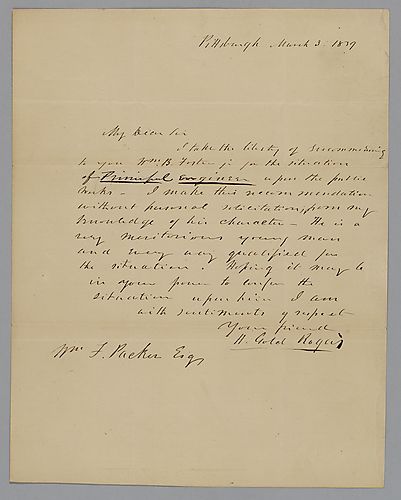 Pittsburgh March 3. 1839
My Dear Sir
I take the liberty of recommending
to you Wm. B. Foster jr for the situation
of Principal Engineer upon the public
works - I make this recommendation
without personal solicitation, from my
knowledge of his character - He is a
very meritorious young man
and every way qualified for
the situation. Hoping it may be
in your power to confer the
situation upon him I am
with sentiments of respect
Your friend
H. Gold Rogers
Wm F. Packer Esq